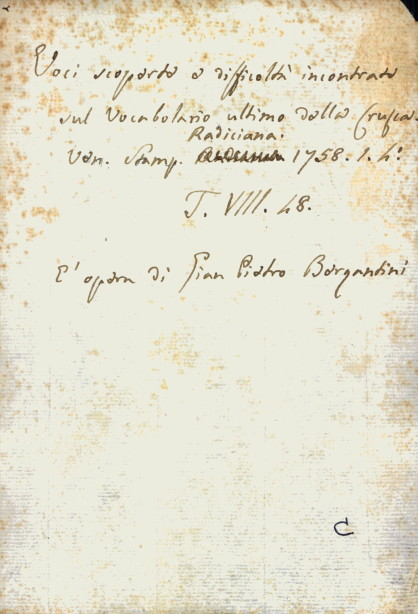 Voci scoperte e difficoltà incontrate
sul Vocabolario ultimo della Crusca.
Radiciana.
Ven. Stamp. 1758. 1. 4.º
T. VIII. 48.
E' opera di Gian Pietro Bergantini
C